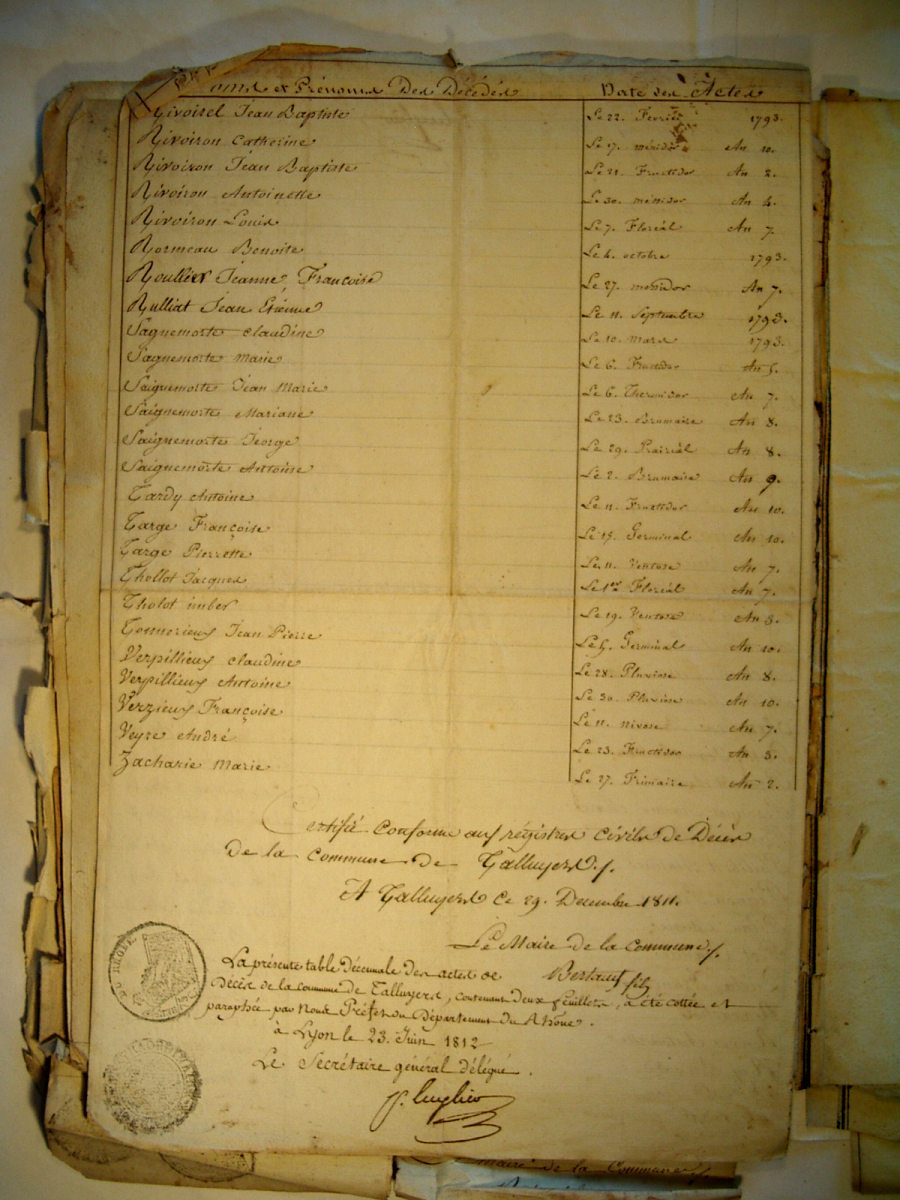 Noms et Prénoms Des Décédés Date des Actes
Rivoirel Jean Baptiste Le 22. Fevrier 1793.
Rivoiron Catherine Le 17. méssidor An 10.
Rivoiron Jean Baptiste Le 21. Fructidor An 2.
Rivoiron Antoinette Le 30. méssidor An 4.
Rivoiron Louis Le 7. Floréal An 7.
Rormeau Benoite Le 4. octobre 1793.
Roullier Jeanne Françoise Le 27. messidor An 7.
Rulliat Jean Etienne Le 11. Septembre 1793.
Sagnemorte Claudine Le 10. Mars 1793.
Sagnemorte Marie Le 6. Fructidor An 5.
Saignemorte Jean Marie Le 6. Thermidor An 7.
Saignemorte Mariane Le 23. Brumaire An 8.
Saignemorte George Le 29. Prairéal An 8.
Saignemorte Antoine Le 2. Brumaire An 9.
Tardy Antoine Le 11. Fructidor An 10.
Targe Françoise Le 15. Germinal An 10.
Targe Pierrette Le 11. Ventose An 7.
Thollot Jacques Le 1er Floréal An 7.
Tholot imber Le 19. Ventose An 3.
Tonnerieux Jean Pierre Le 5. Germinal An 10.
Verpillieux Claudine Le 28. Pluviose An 8.
Verpillieux Antoine Le 20. Pluviose An 10.
Verzieux Françoise Le 11. nivose An 7.
Veyre André Le 23. Fructidor An 3.
Zacharie Marie Le 27. Frimaire An 2.
Certifié conforme aux régistres civils de Décès
de la commune de Talluyers.
A Talluyers Ce 29. Decembre 1811.
Le Maire de la commune
La présente table décennale des actes de
Décès de la commune de Talluyers, contenant deux feuillets, a été cottée et
paraphée par Nous Préfet du Département du Rhône.
à Lyon le 23. Juin 1812
Le Sécrétaire général délégué.
DU RHÔNE
Maire de la Commune